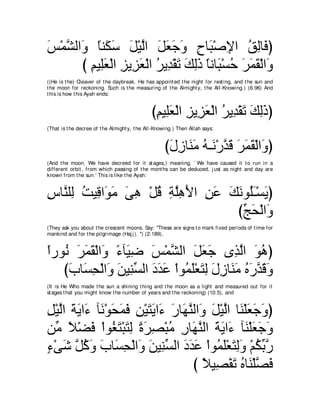 (فَالِقُ الإِصْبَاحِ وَجَعَلَ الَّيْلَ سَكَناً وَالشَّمْسَ
وَالْقَمَرَ حُسْبَاناً ذَلِكَ تَقْدِيرُ الْعَزِيزِ الْعَلِيمِ )
((He is the) Cleaver of the daybreak. He has appointed the night for resting, and the sun and
the moon for reckoning. Such is the measuring of the Almighty, the All-Knowing.) (6:96) And
this is how this Ayah ends:
(ذَلِكَ تَقْدِيرُ الْعَزِيزِ الْعَلِيمِ)
(That is the decree of the Almighty, the All-Knowing.) Then Allah says:
(وَالْقَمَرَ قَدَّرْنَـهُ مَنَازِلَ)
(And the moon, We have decreed for it stages,) meaning, `We have caused it to run in a
different orbit, from which passing of the months can be deduced, just as night and day are
known from the sun.' This is like the Ayah:
(يَسْـَلُونَكَ عَنِ الأَهِلَّةِ قُلْ هِىَ مَوَاقِيتُ لِلنَّاسِ
وَالْحَجِّ)
(They ask you about the crescent moons. Say: "These are signs to mark fixed periods of time for
mankind and for the pilgrimage (Hajj). ") (2:189),
(هُوَ الَّذِى جَعَلَ الشَّمْسَ ضِيَآءً وَالْقَمَرَ نُوراً
وَقَدَّرَهُ مَنَازِلَ لِتَعْلَمُواْ عَدَدَ السِّنِينَ وَالْحِسَابَ)
(It is He Who made the sun a shining thing and the moon as a light and measured out for it
stages that you might know the number of years and the reckoning) (10:5), and
(وَجَعَلْنَا الَّيْلَ وَالنَّهَارَ ءَايَتَيْنِ فَمَحَوْنَآ ءَايَةَ الَّيْلِ
وَجَعَلْنَآ ءَايَةَ النَّهَارِ مُبْصِرَةً لِتَبْتَغُواْ فَضْلاً مِّن
رَّبِّكُمْ وَلِتَعْلَمُواْ عَدَدَ السِّنِينَ وَالْحِسَابَ وَكُلَّ شَىْءٍ
فَصَّلْنَاهُ تَفْصِيلاً )